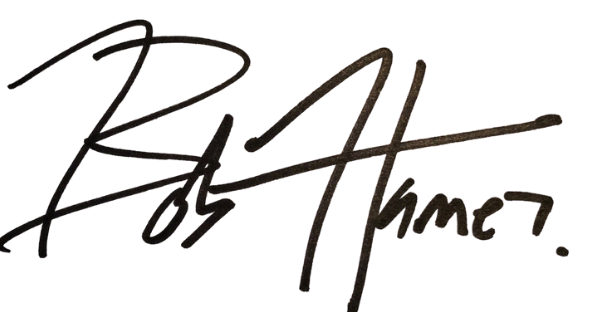 Bob Hamer.